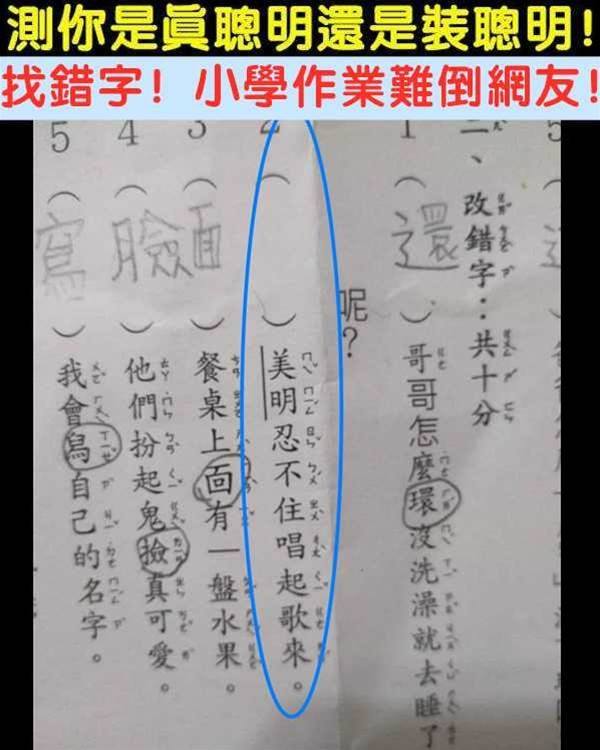 測你是真聰明還是裝聰明！
找錯字！小學作業難倒網友！
改錯字：共十分
1（還）哥哥怎麼環沒洗澡就去睡了
呢？
2（ ）美明忍不住唱起歌來。
3（面）餐桌上靣有一盤水果。
4（臉）他們扮起鬼撿真可愛。
5（寫）我會舄自己的名字。